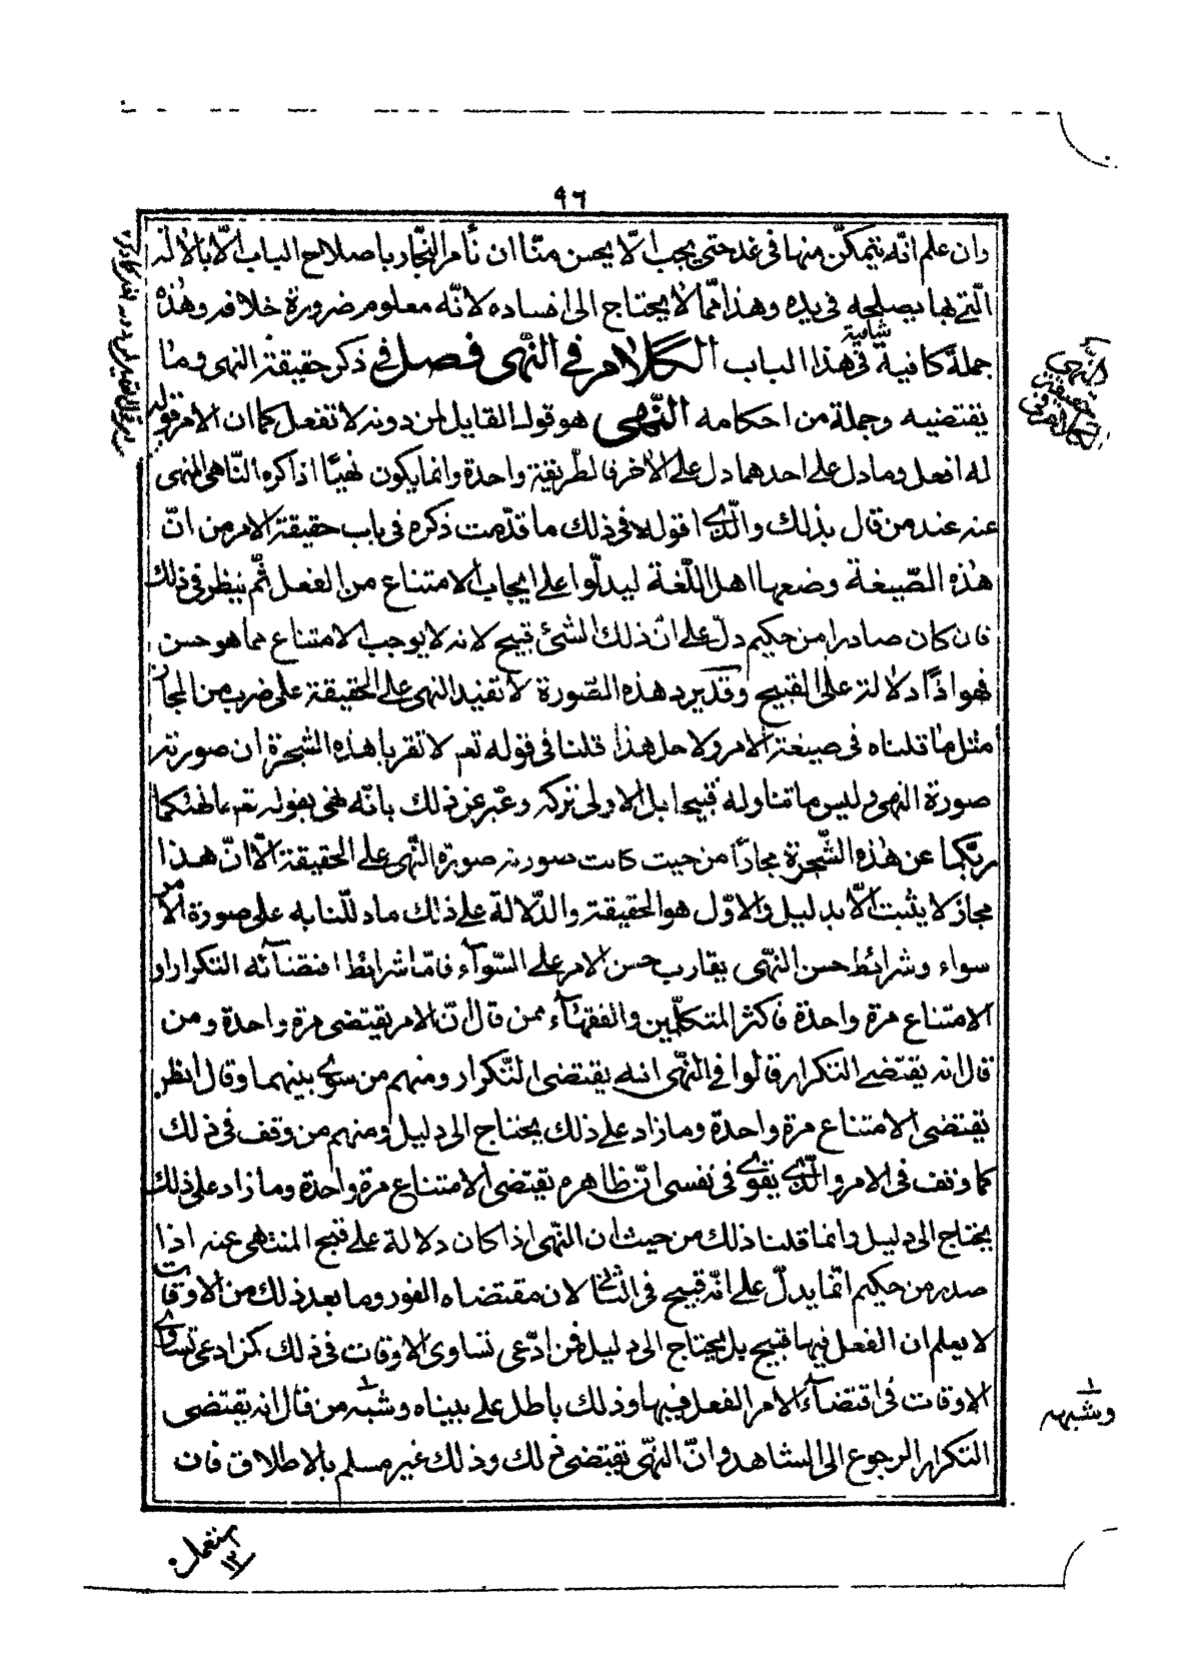 ٩٦
وان علم انّه يتمكّن منها فى غد حتى يجب الّا يحسن منّا ان نأمر النّجّار باصلاح الباب الّا بالآلة
الّتى بها يصلحه فى يده وهذا ممّا لا يحتاج الى افساده لانّه معلوم ضرورة خلافه وهذه
شافية
جملة كافية فى هذا الباب الكلام فى النّهى فصل فى ذكر حقيقة النهى وما
النهى
حقيقة
الكلام فى
يقتضيه وجملة من احكامه النّهى هو قول القايل لمن دونه لا تفعل كما ان الامر قوله
له افعل وما دل على احدهما دل على الآخر فالطريقة واحدة وانما يكون نهيًا اذا كره النّاهى المنهى
عنه عند من قال بذلك والّذى اقوله فى ذلك ما قدّمت ذكره فى باب حقيقة الامر من انّ
هذه الصّيغة وضعها اهل اللّغة ليدلّوا على ايجاب الامتناع من الفعل ثمّ ينظر فى ذلك
فان كان صادرا من حكيم دلّ على انّ ذلك الشئ قبيح لانه لا يوجب الامتناع مما هو حسن
فهو اذًا دلالة على القبيح وقد يرد هذه الصّورة لا تفيد النهى على الحقيقة على ضرب من المجاز
مثل ما قلناه فى صيغة الامر ولاجل هذا قلنا فى قوله تعم لا تقربا هذه الشجرة ان صورته
صورة النهى وليس ما تناوله قبيحا بل الاولى تركه وعبّر عن ذلك بانّه نهى بقوله تعم ما نهيكما
ربّكما عن هذه الشّجرة مجازًا من حيث كانت صورته صورة النّهى على الحقيقة الّا انّ هذا
مجاز لا يثبت الّا بدليل والاوّل هو الحقيقة والدّلالة على ذلك ما دلّلنا به على صورة الامر
سواء وشرائط حسن النّهى يقارب حسن الامر على السّوآء فامّا شرائط اقتضآئه التكرار او
الامتناع مرة واحدة فاكثر المتكلّمين والفقهآء ممن قال انّ الامر يقتضى مرة واحدة ومن
قال انه يقتضى التكرار قالوا فى النّهى انه يقتضى التّكرار ومنهم من سوى بينهما وقال انه
يقتضى الامتناع مرة واحدة وما زاد على ذلك يحتاج الى دليل ومنهم من وقف فى ذلك
كما وقف فى الامر والّذى يقوى فى نفسى انّ ظاهره يقتضى الامتناع مرة واحدة وما زاد على ذلك
يحتاج الى دليل وانما قلنا ذلك من حيث ان النّهى اذا كان دلالة على قبح المنتهى عنه اذا
صدر من حكيم انّما يدلّ على انّه قبيح فى الثانى لان مقتضاه الفور وما بعد ذلك من الاوقات
لا يعلم ان الفعل فيها قبيح بل يحتاج الى دليل فمن ادّعى تساوى الاوقات فى ذلك كمن ادعى تساوى
الاوقات فى اقتضآء الامر الفعل فيها وذلك باطل على بيناه وشبّه من قال انه يقتضى
وشبهه
التكرار الرجوع الى الشاهد وانّ النّهى يقتضى ذلك وذلك غير مسلم بالاطلاق فان